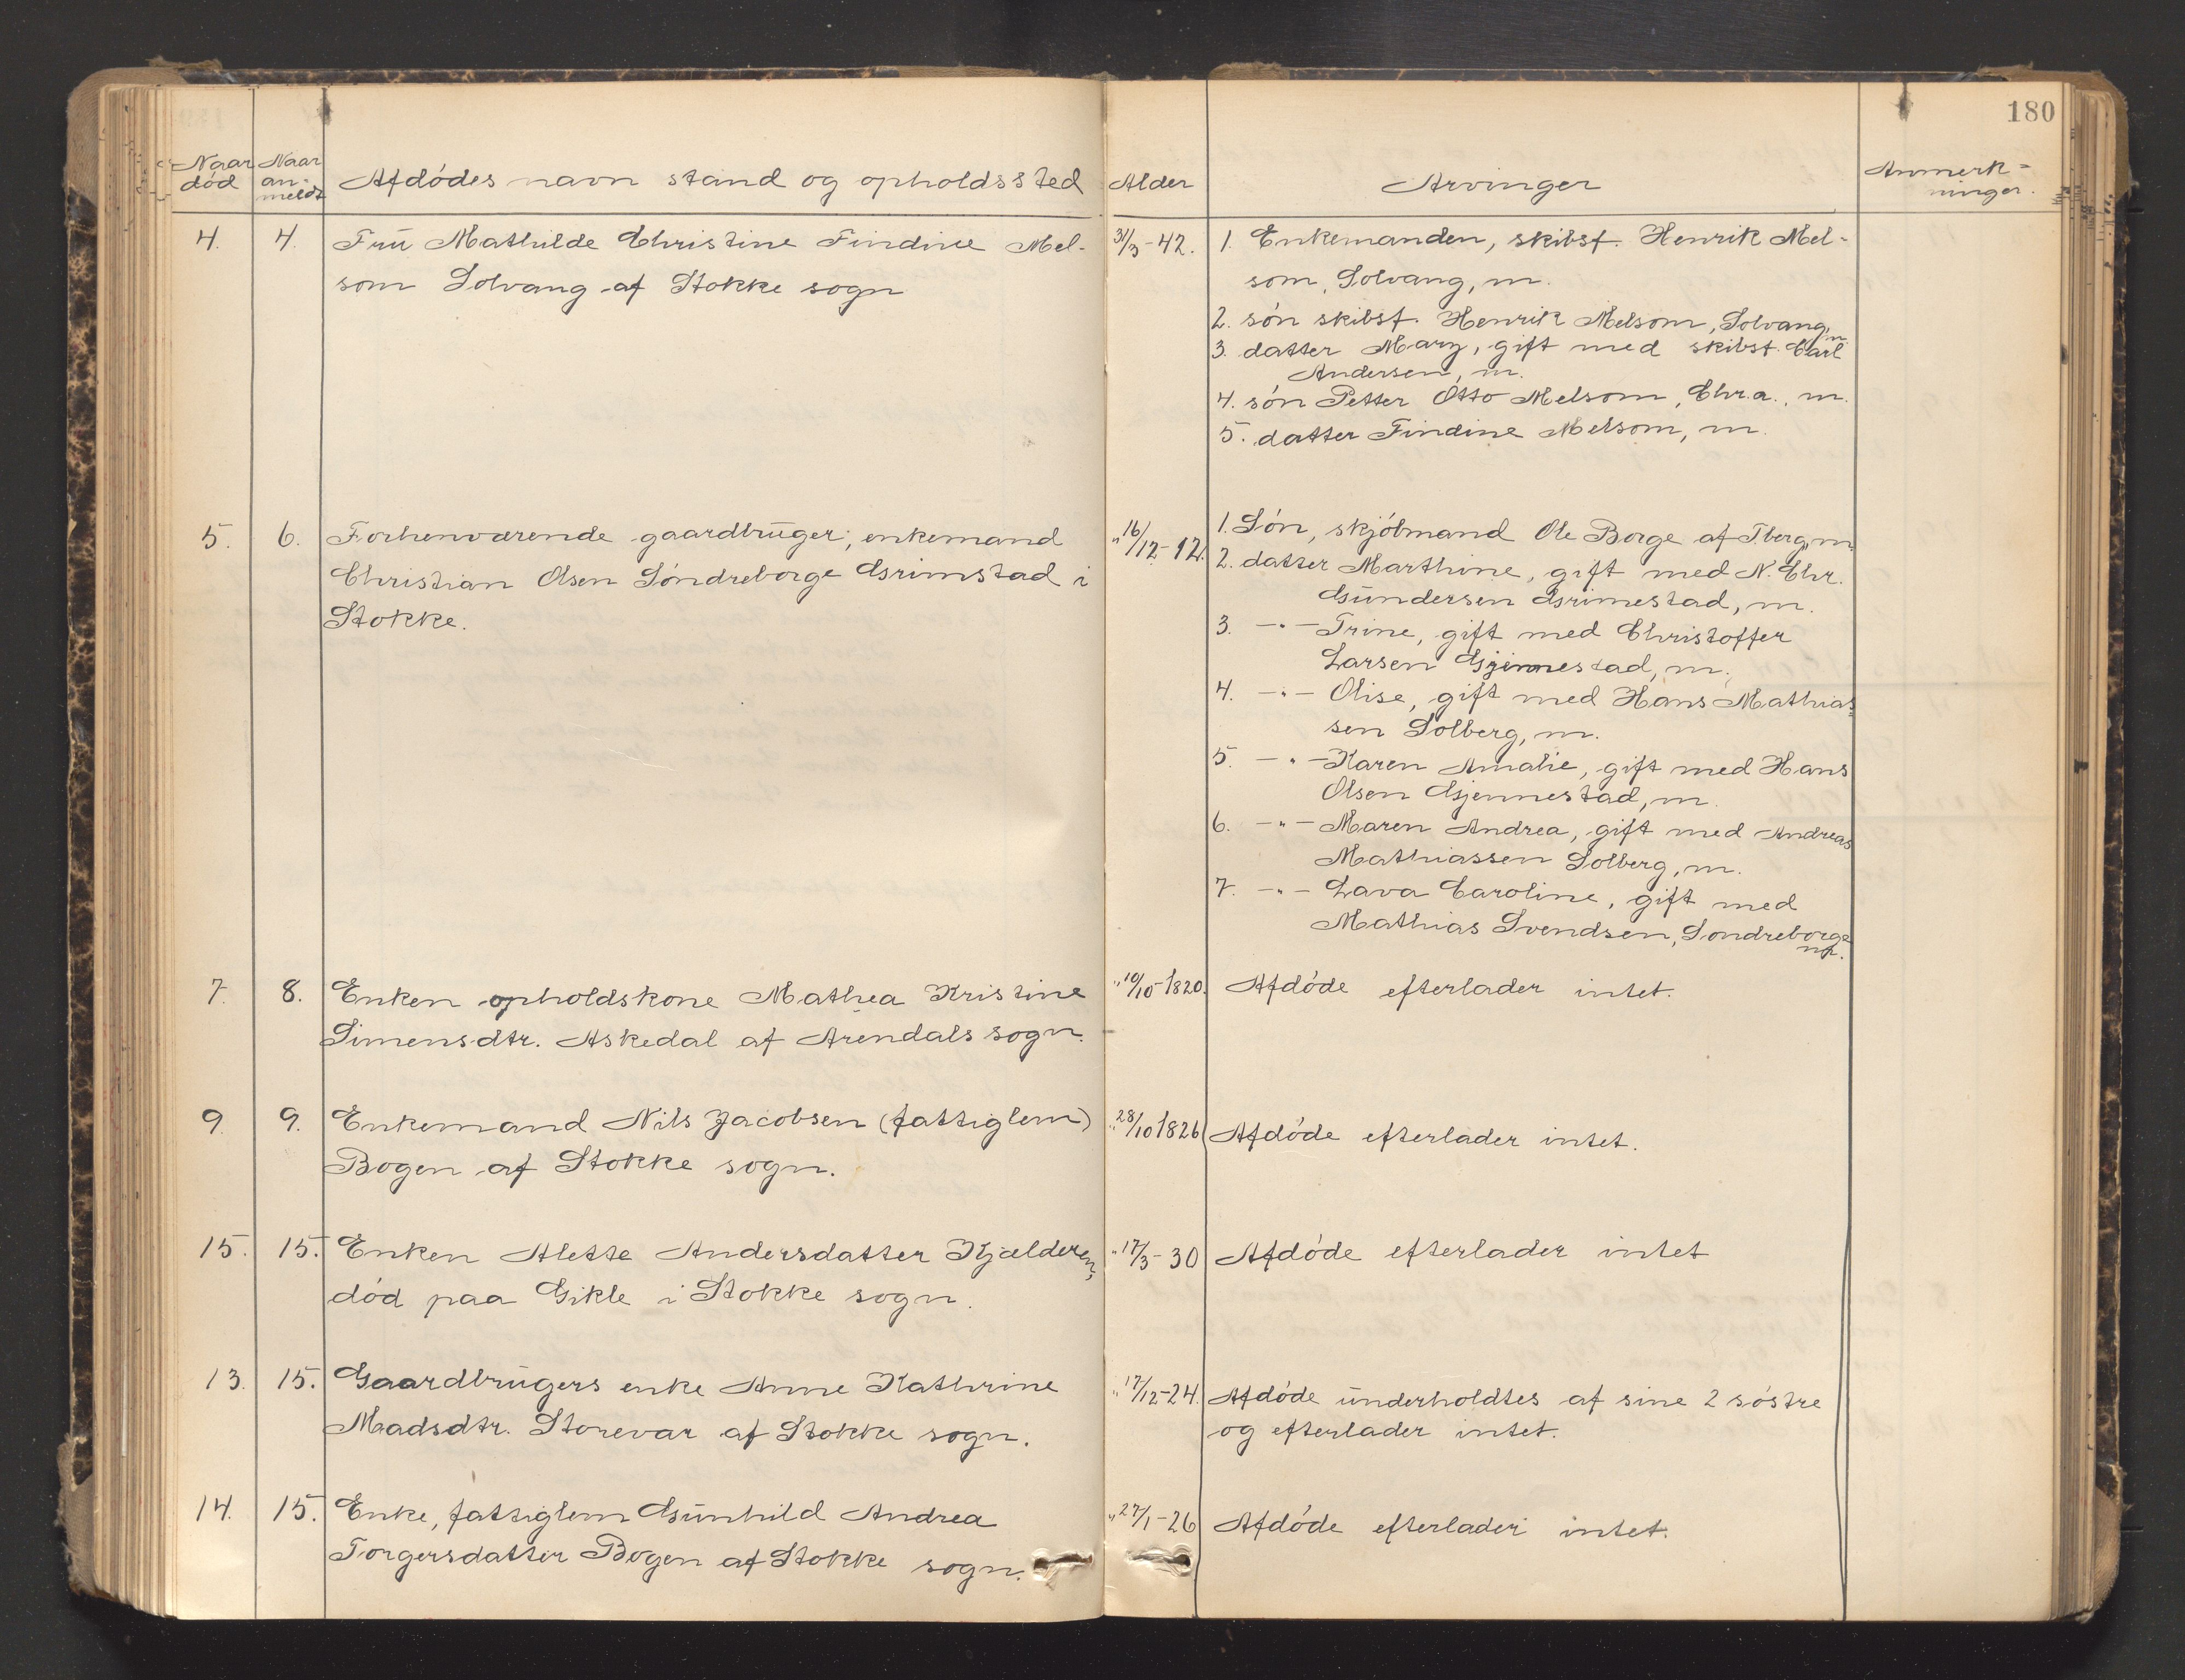 180
Naar død
Naar an-meldt
Afdødes navn stand og opholdssted
Alder
Arvinger
Anmerk-
ninger.
4. 4. Fru Mathilde Christine Findine Mel-
som Solvang af Stokke sogn
31/3-42.
1. Enkemanden, skibsf. Henrik Mel-
som, Solvang, m.
2. søn skibsf. Henrik Melsom, Solvang, m.
3. datter Mary, gift med skibsf. Carl
Andersen, m.
4. søn Petter Otto Melsom, Chr.a., m.
5. datter Findine Melsom, m.
5. 6. Forhenværende gaardbruger, enkemand
Christian Olsen Søndreborge Grimstad i
Stokke.
" 16/12-12.
1. Søn, skjøbmand Ole Borge af Tberg, m.
2. datter Marthine, gift med N. Chr.
Gundersen Grimestad, m.
3. -"- Trine, gift med Christoffer
Larsen Gjennestad, m.
4. -"- Olise, gift med Hans Mathias=
sen Solberg, m.
5. -"- Karen Amalie, gift med Hans
Olsen Gjennestad, m.
6. -"- Maren Andrea, gift med Andreas
Mathiassen Solberg, m.
7. -"- Lava Caroline, gift med
Mathias Svendsen, Søndreborge
m.
7. 8. Enken opholdskone Mathea Kristine
Simensdtr. Askedal af Arendals sogn.
" 10/10-1820. Afdøde efterlader intet.
9. 9. Enkemand Nils Jacobsen (fattiglem)
Bogen af Stokke sogn.
" 28/10 1826 Afdøde efterlader intet.
15. 15. Enken Alette Andersdatter Kjælderen,
død paa Gikle i Stokke sogn.
" 17/3-30 Afdøde efterlader intet
13. 15. Gaardbrugers enke Anne Kathrine
Madsdtr. Storevar af Stokke sogn.
" 17/12-24. Afdøde underholdtes af sine 2 søstre
og efterlader intet.
14. 15. Enke, fattiglem Gunhild Andrea
Torgersdatter Bogen af Stokke sogn.
" 27/1-26 Afdøde efterlader intet.